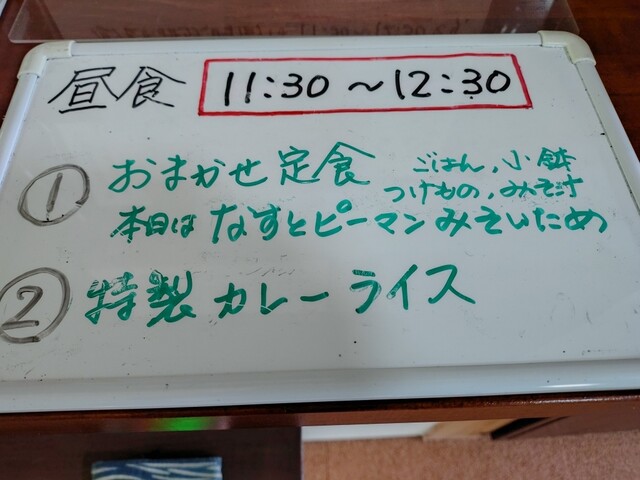 昼食 11:30 ~12:30
① おまかせ定食 ごはん、小鉢
つけもの、みそ汁
本日は なすとピーマンみそいため
② 特製 カレーライス